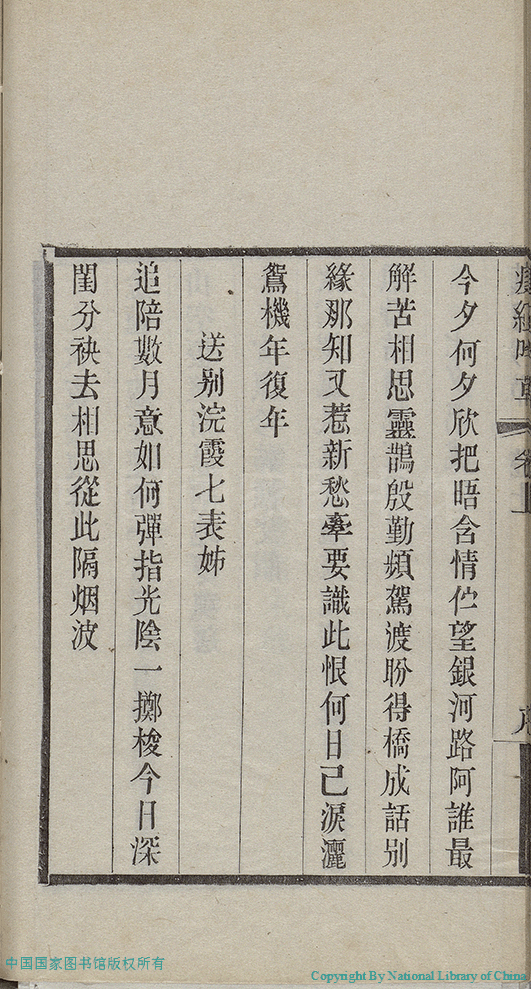 今夕何夕欣把晤含情伫望銀河路阿誰最
解苦相思靈鵲殷勤頻駕渡盼得橋成話別
緣那知又惹新愁牽要識此恨何日已淚灑
鴛機年復年
送別浣霞七表姊
追陪數月意如何彈指光陰一擲梭今日深
閨分袂去相思從此隔烟波
中国国家图书馆版权所有
Copyright By National Library of China